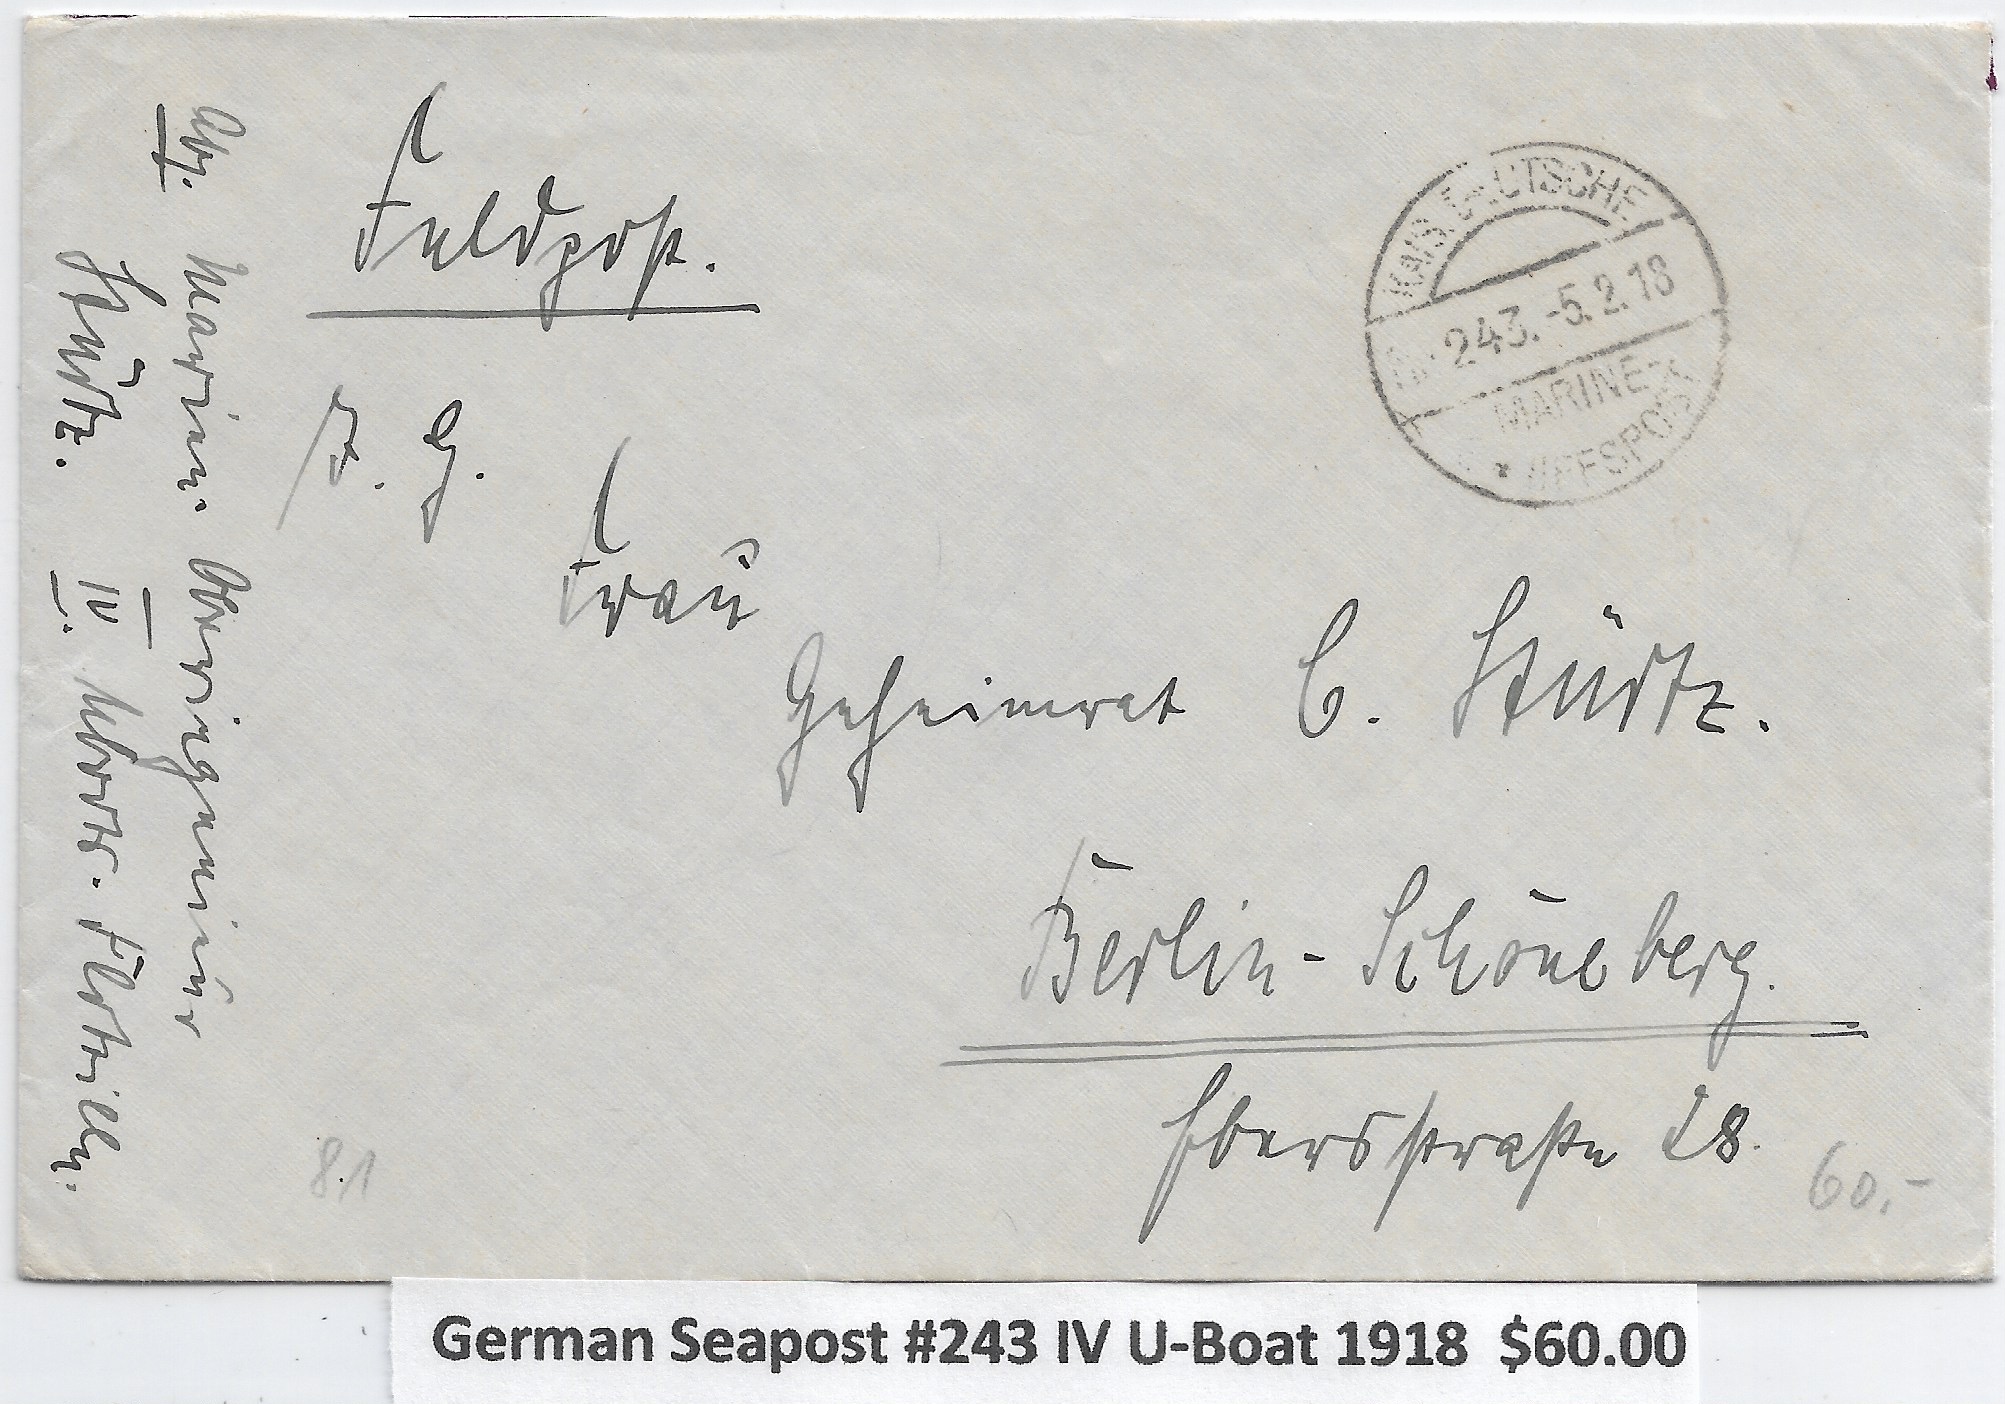 Feldpost.
F. G.
Frau
Geheimrat C. Stürtz.
Berlin-Schöneberg.
Ebersstraße 28.
Abs. Marine Oberingenieur
Stürtz. IV. Uboots. Flotille.
KAIS. DEUTSCHE
Nr. 243. -5.2.18
MARINE-
SCHIFFSPOST
8.1
60.-
German Seapost #243 IV U-Boat 1918 $60.00